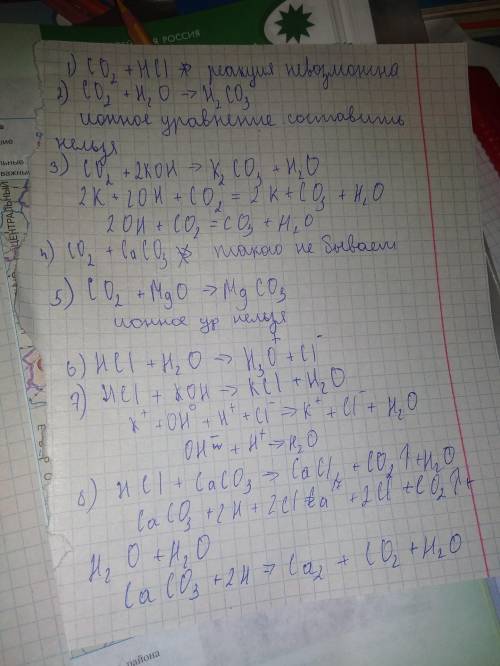 РОССИЯ
ЦЕНТРАЛЬНЫЙ
1) CO₂ + HCl ↛ реакция невозможна
2) CO₂ + H₂O → H₂CO₃
ионное уравнение составить
нельзя
3) CO₂ + 2KOH → K₂CO₃ + H₂O
2K + 2OH + CO₂ = 2K + CO₃ + H₂O
2OH + CO₂ = CO₃ + H₂O
4) CO₂ + CaCO₃ ↛ такого не бывает
5) CO₂ + MgO → MgCO₃
ионное ур нельзя
6) HCl + H₂O → H₃O⁺ + Cl⁻
7) HCl + KOH → KCl + H₂O
K⁺ + OH⁻ + H⁺ + Cl⁻ → K⁺ + Cl⁻ + H₂O
OH⁻ + H⁺ → H₂O
8) HCl + CaCO₃ → CaCl₂ + CO₂↑ + H₂O
CaCO₃ + 2H + 2Cl Ca + 2Cl + CO₂↑ +
H₂O + H₂O
CaCO₃ + 2H = Ca₂ + CO₂ + H₂O
района